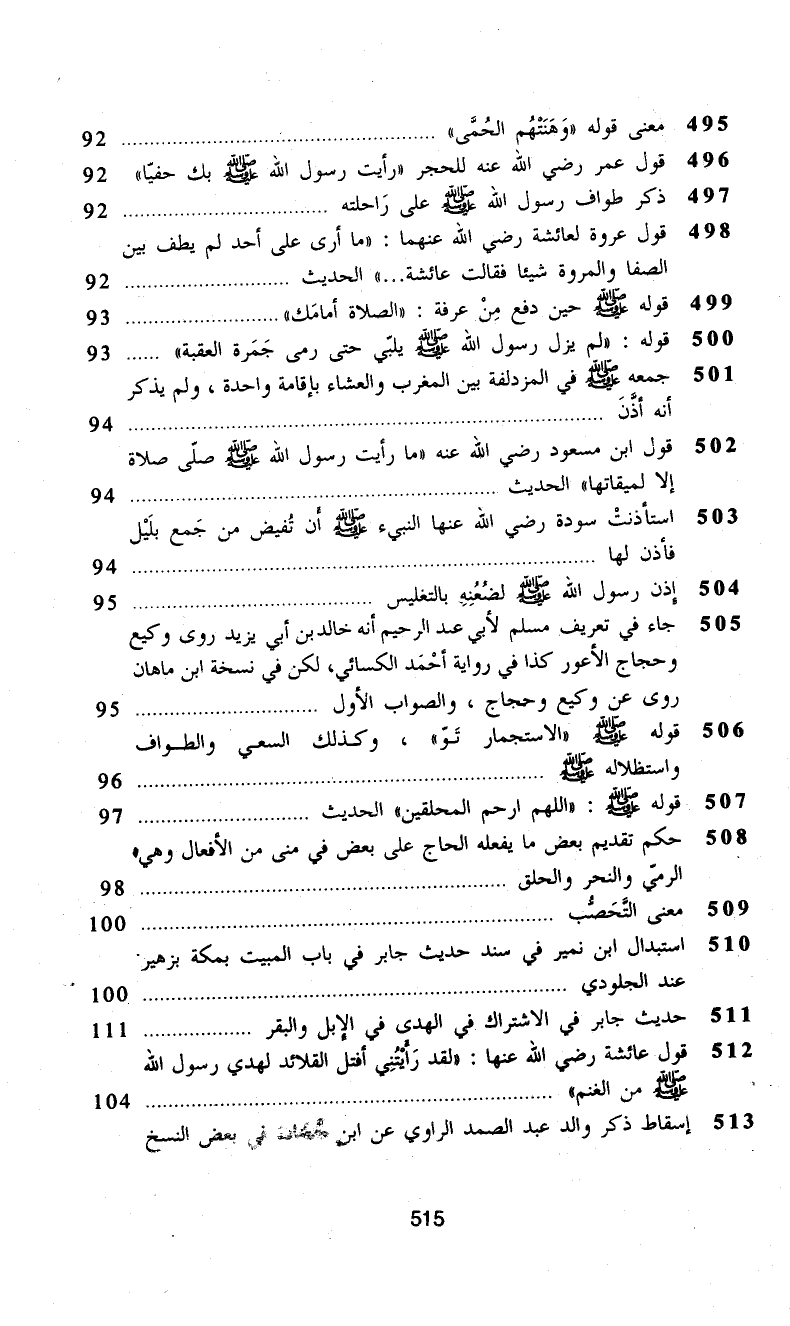 495 معنى قوله «وَهَنَتْهُم الحُمَّى» ........ 92
496 قول عمر رضي الله عنه للحجر «رأيت رسول الله ﷺ بك حفيّا» 92
497 ذكر طواف رسول الله ﷺ على رَاحلته ........ 92
498 قول عروة لعائشة رضي الله عنهما : «ما أرى على أحد لم يطف بين
الصفا والمروة شيئا فقالت عائشة...» الحديث ........ 92
499 قوله ﷺ حين دفع مِنْ عرفة : «الصلاة أمامَك» ........ 93
500 قوله : «لم يزل رسول الله ﷺ يلبّي حتى رمى جَمَرة العقبة» ...... 93
501 جمعه ﷺ في المزدلفة بين المغرب والعشاء بإقامة واحدة ، ولم يذكر
أنه أذَّنَ ........ 94
502 قول ابن مسعود رضي الله عنه «ما رأيت رسول الله ﷺ صلّى صلاة
إلا لميقاتها» الحديث ........ 94
503 استأذنتْ سودة رضي الله عنها النبيء ﷺ أن تُفيض من جَمع بلَيْل
فأذن لها ........ 94
504 إذن رسول الله ﷺ لضُعُنِهِ بالتغليس ........ 95
505 جاء في تعريف مسلم لأبي عبد الرحيم أنه خالد بن أبي يزيد روى وكيع
وحجاج الأعور كذا في رواية أحْمَد الكسائي، لكن في نسخة ابن ماهان
روى عن وكيع وحجاج ، والصواب الأول ........ 95
506 قوله ﷺ «الاستجمار تَوّ» ، وكذلك السعي والطواف
واستظلاله ﷺ ........ 96
507 قوله ﷺ : «اللهم ارحم المحلقين» الحديث ........ 97
508 حكم تقديم بعض ما يفعله الحاج على بعض في منى من الأفعال وهي،
الرميّ والنحر والحلق ........ 98
509 معنى التَّحَصُّب ........ 100
510 استبدال ابن نمير في سند حديث جابر في باب المبيت بمكة بزهير
عند الجلودي ........ 100
511 حديث جابر في الاشتراك في الهدى في الإبل والبقر ........ 111
512 قول عائشة رضي الله عنها : «لقد رَأَيْتُنِي أفتل القلائد لهدي رسول الله
ﷺ من الغنم» ........ 104
513 إسقاط ذكر والد عبد الصمد الراوي عن ابن في بعض النسخ
515